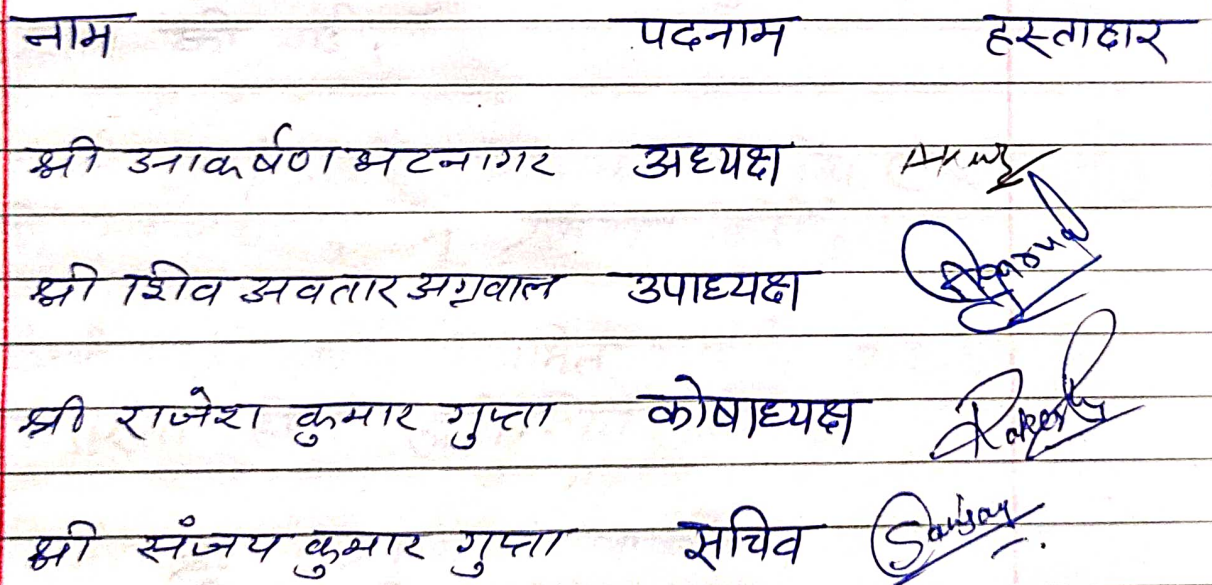 नाम पदनाम हस्ताक्षर
श्री आकर्षण भटनागर अध्यक्ष
श्री शिव अवतार अग्रवाल उपाध्यक्ष Agarwal
श्री राजेश कुमार गुप्ता कोषाध्यक्ष
श्री संजय कुमार गुप्ता सचिव Sanjay